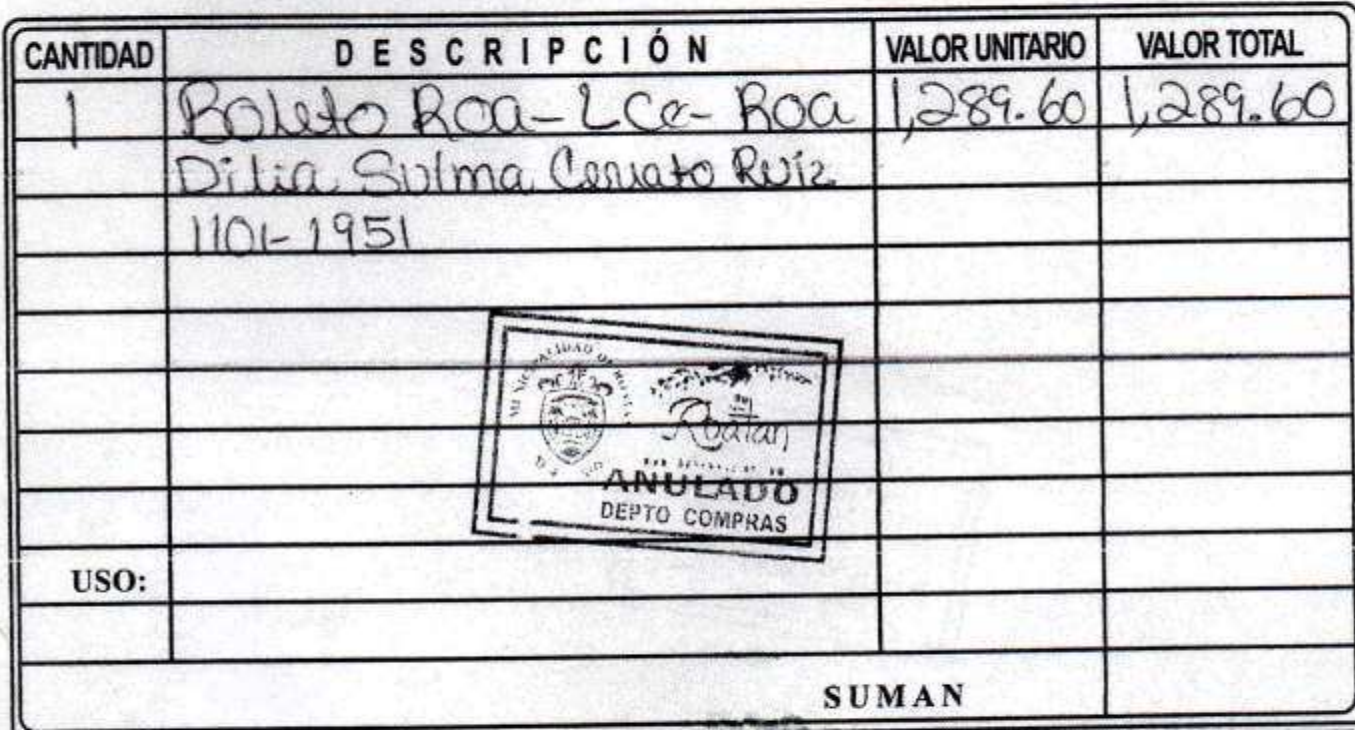 CANTIDAD DESCRIPCIÓN VALOR UNITARIO VALOR TOTAL
1 Boleto Roa-LCe-Roa 1,289.60 1,289.60
Dilia Sulma Ceruato Ruiz
1101-1951
MUNICIPALIDAD DE
Roatan
ANULADO
DEPTO COMPRAS
USO:
SUMAN